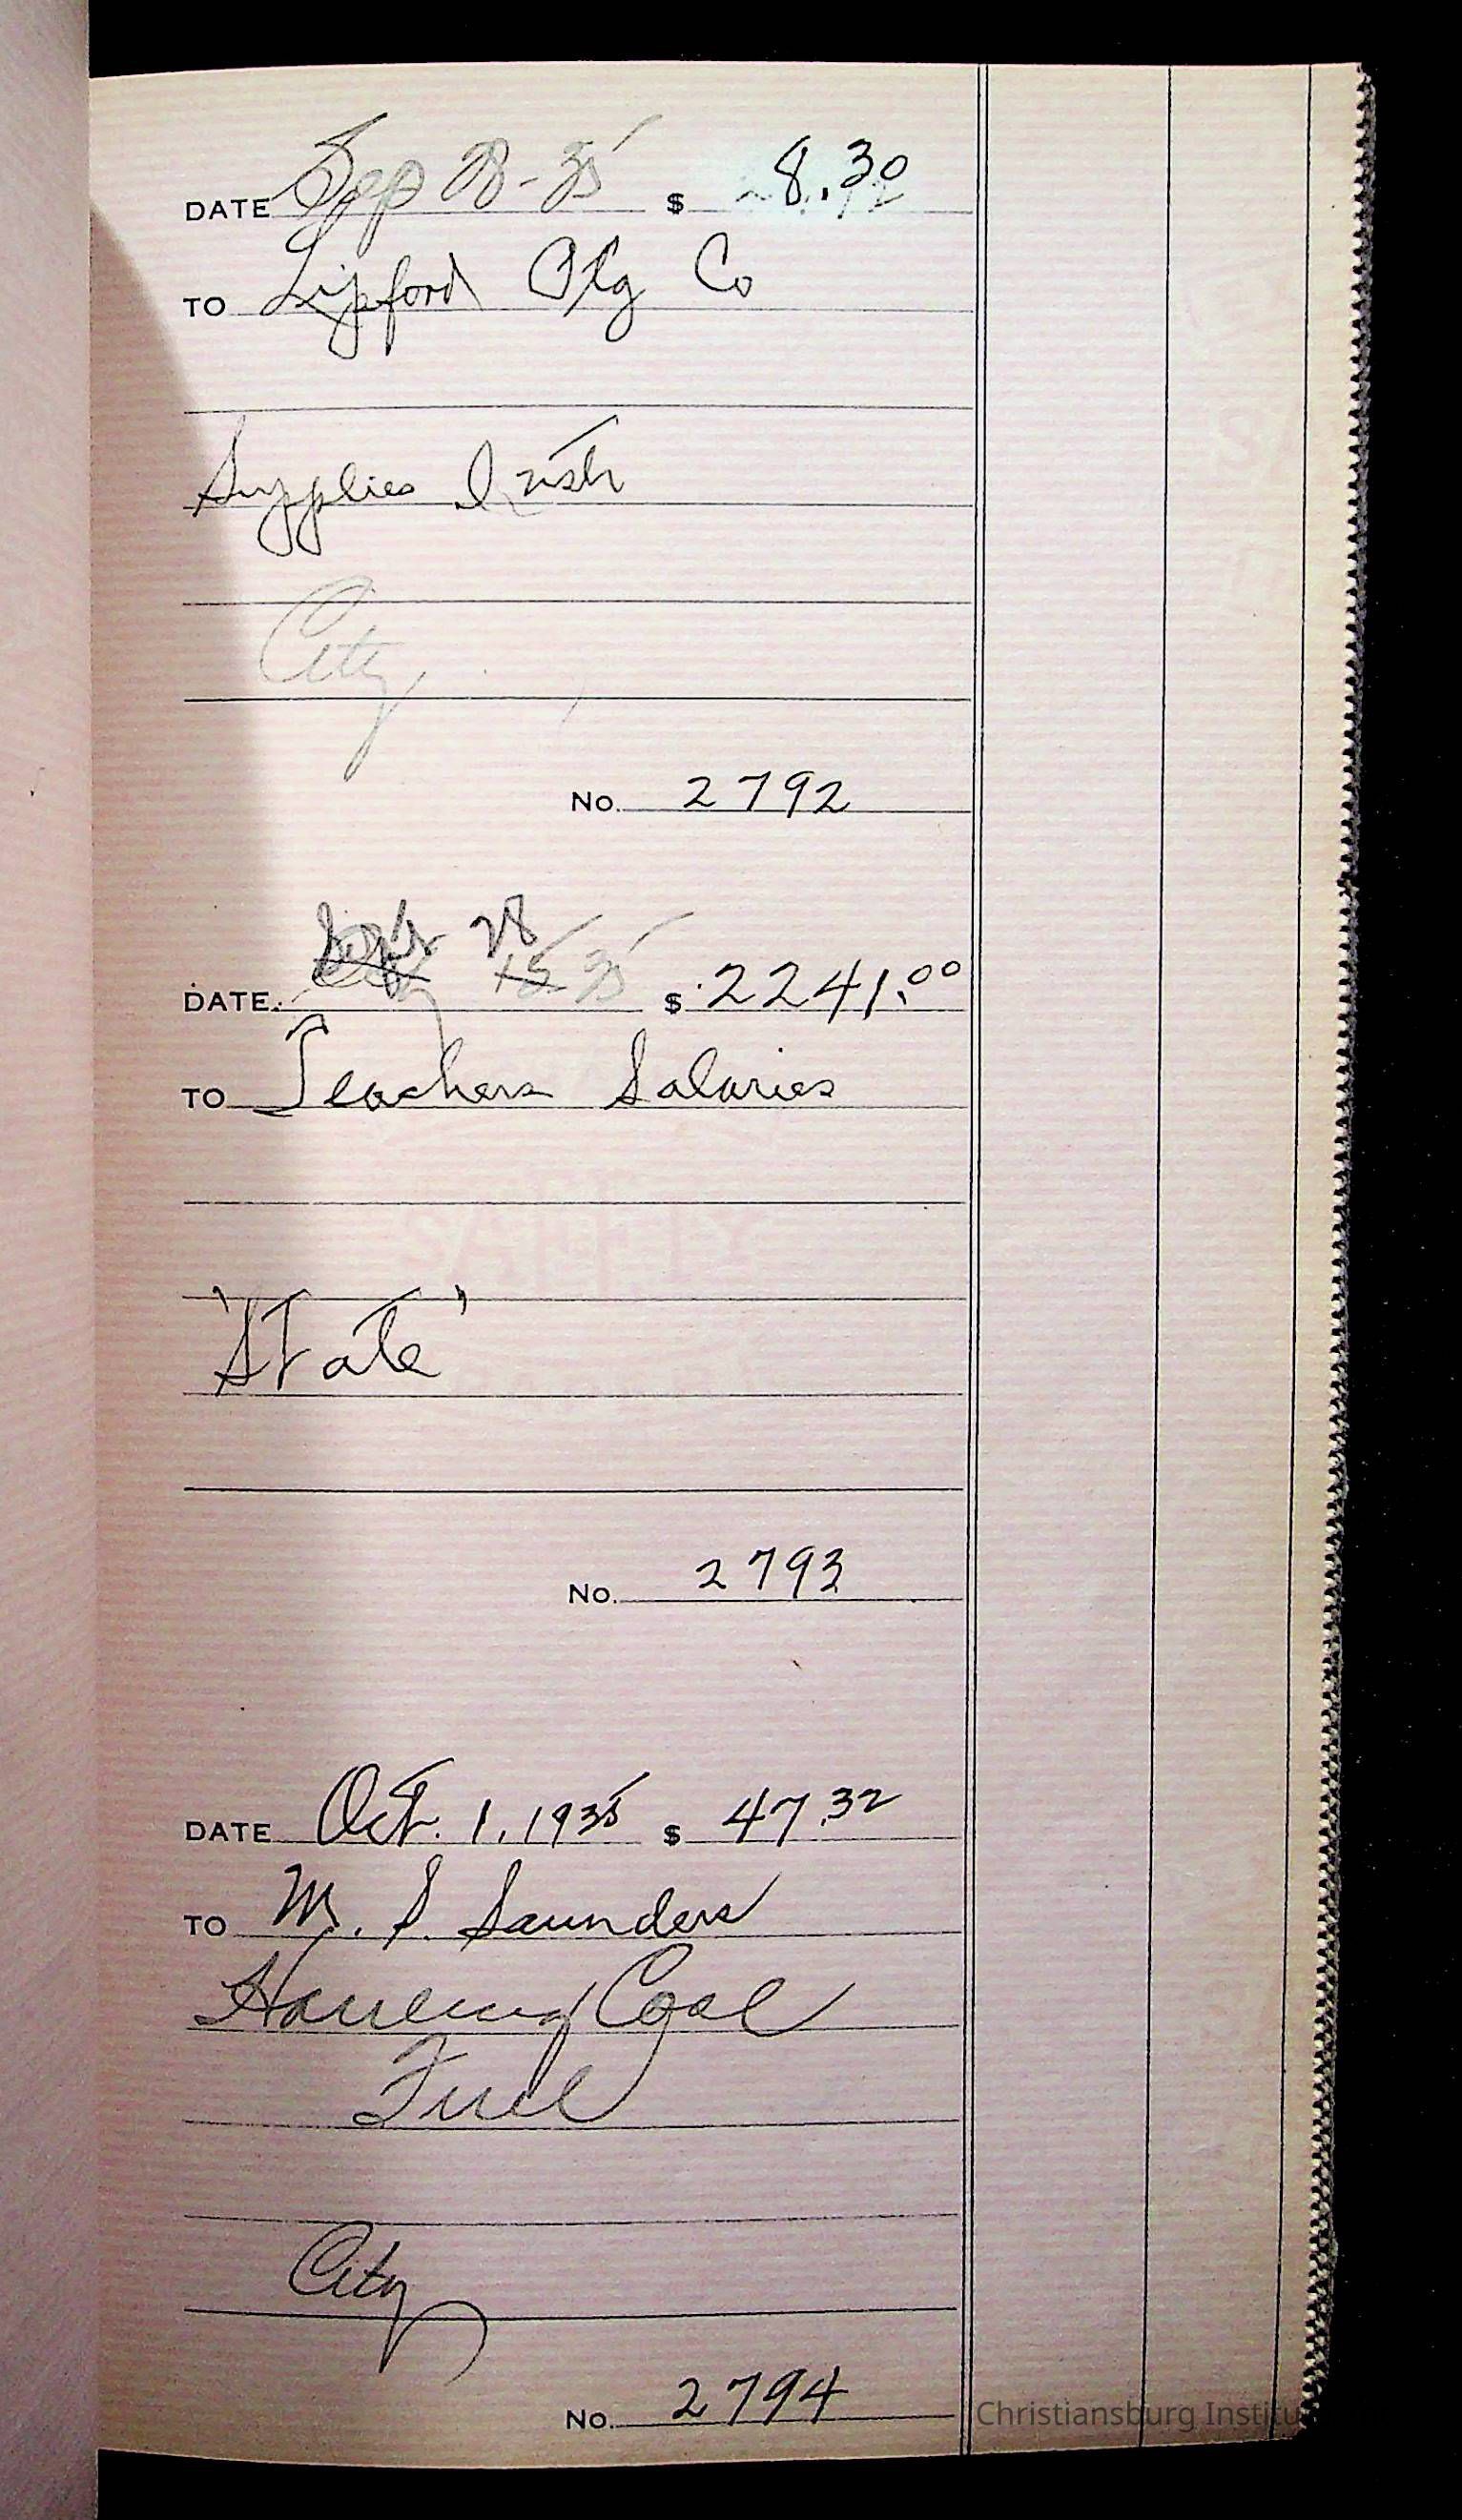 DATE Sep 28-35 $ 8.30
TO Lipford Ptg Co
Supplies Inst
City
No. 2792
DATE Sept 28 15 35 $ 2241.00
TO Teachers Salaries
SAFETY
'State'
No. 2793
DATE Oct. 1, 1935 $ 47.32
TO M. S. Saunders
Hauling Coal
Fuel
City
No. 2794
Christiansburg Institu